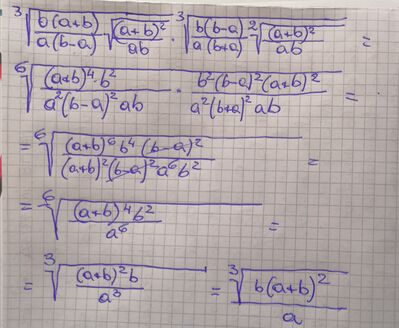 ∛((b(a+b))/(a(b-a)) √((a+b)²/(ab))) · ∛((b(b-a))/(a(b+a)) ²√((a+b)²/(ab))) =
⁶√(((a+b)⁴·b²)/(a²(b-a)²ab) · (b²(b-a)²(a+b)²)/(a²(b+a)²ab)) =
= ⁶√(((a+b)⁶b⁴(b-a)²)/((a+b)²(b-a)²a⁶b²)) =
= ⁶√(((a+b)⁴b²)/(a⁶)) =
= ∛(((a+b)²b)/(a³)) = (∛(b(a+b)²))/a